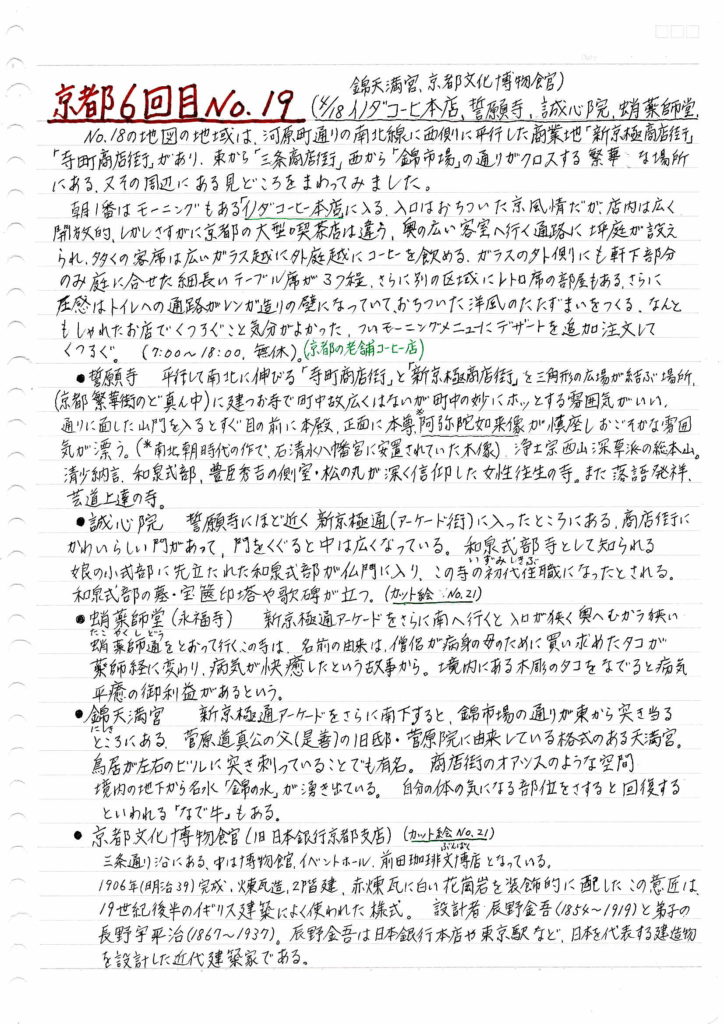 錦天満宮、京都文化博物館)
京都6回目No.19 (4/18イノダコーヒ本店、誓願寺、誠心院、蛸薬師堂、
No.18の地図の地域は、河原町通りの南北線に西側に平行した商業地「新京極商店街」
「寺町商店街」があり、東から「三条商店街」西から「錦市場」の通りがクロスする繁華な場所
にある、又その周辺にある見どころをまわってみました。
朝1番はモーニングもある「イノダコーヒー本店」に入る、入口はおちついた京風情だが、店内は広く
開放的、しかしさすがに京都の大型喫茶店は違う、奥の広い客室へ行く通路に坪庭が設え
られ、多くの客席は広いガラス越えに外庭越えにコーヒーを飲める、ガラスの外側にも軒下部分
のみ庭に合せた細長いテーブル席が3つ程、さらに別の区域にレトロ席の部屋もある、さらに
圧感はトイレへの通路がレンガ造りの壁になっていて、おちついた洋風のたたずまいをつくる、なんと
もしゃれたお店でくつろぐこと気分がよかった、ついモーニングメニューにデザートを追加注文して
くつろぐ。 (7:00~18:00、無休)。(京都の老舗コーヒー店)
● 誓願寺 平行して南北に伸びる「寺町商店街」と「新京極商店街」を三角形の広場が結ぶ場所、
(京都繁華街のど真ん中)に建つお寺で町中故広くはないが町中の妙にホッとする雰囲気がいい、
通りに面した山門を入るとすぐ目の前に本殿、正面に本尊*阿弥陀如来像が鎮座しおごそかな雰囲
気が漂う。(*南北朝時代の作で、石清水八幡宮に安置されていた木像)、浄土宗西山深草派の総本山。
清少納言、和泉式部、豊臣秀吉の側室・松の丸が深く信仰した女性往生の寺。また落語発祥、
芸道上達の寺。
● 誠心院 誓願寺にほど近く新京極通(アーケード街)に入ったところにある、商店街に
かわいらしい門があって、門をくぐると中は広くなっている。 和泉式部寺として知られる
いずみしきぶ
娘の小式部に先立たれた和泉式部が仏門に入り、この寺の初代住職になったとされる。
和泉式部の墓・宝篋印塔や歌碑が立つ。(カット絵 No.21)
● 蛸薬師堂(永福寺) 新京極通アーケードをさらに南へ行くと入口が狭く奥へむかう狭い
たこやくしどう
蛸薬師通をとおって行く、この寺は、名前の由来は、僧侶が病身の母のために買い求めたタコが
薬師経に変わり、病気が快癒したという故事から。境内にある木彫のタコをなでると病気
平癒の御利益があるという。
● 錦天満宮 新京極通アーケードをさらに南下すると、錦市場の通りが東から突き当る
にしき
ところにある、菅原道真公の父(是善)の旧邸・菅原院に由来している格式のある天満宮。
鳥居が左右のビルに突き刺っていることでも有名。 商店街のオアシスのような空間
境内の地下から名水「錦の水」が湧き出ている。 自分の体の気になる部位をさすると回復する
といわれる「なで牛」もある。
● 京都文化博物館(旧日本銀行京都支店) (カット絵No.21)
ぶんぱく
三条通り沿にある、中は博物館、イベントホール、前田珈琲文博店となっている。
1906年(明治39)完成、煉瓦造、2階建、赤煉瓦に白い花崗岩を装飾的に配したこの意匠は、
19世紀後半のイギリス建築によく使われた様式。 設計者 辰野金吾(1854~1919)と弟子の
長野宇平治(1867~1937)。辰野金吾は日本銀行本店や東京駅など、日本を代表する建造物
を設計した近代建築家である。